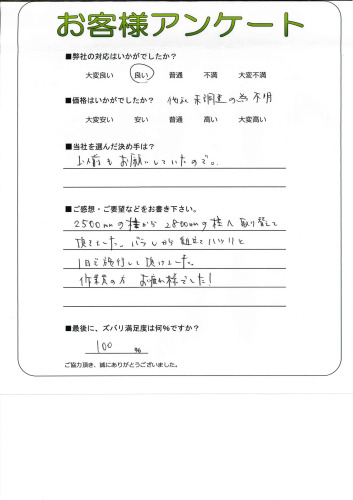 お客様アンケート
■弊社の対応はいかがでしたか?
大変良い 良い 普通 不満 大変不満
■価格はいかがでしたか? 他社 未調査の為 不明
大変安い 安い 普通 高い 大変高い
■当社を選んだ決め手は?
以前もお願いしていたので。
■ご感想・ご要望などをお書き下さい。
2500mmの棟から2800mmの棟へ取り替えて
頂きました。バラしから組立てバッチリと
1日で施行して頂けました。
作業員の方 お疲れ様でした!
■最後に、ズバリ満足度は何%ですか?
100 %
ご協力頂き、誠にありがとうございました。